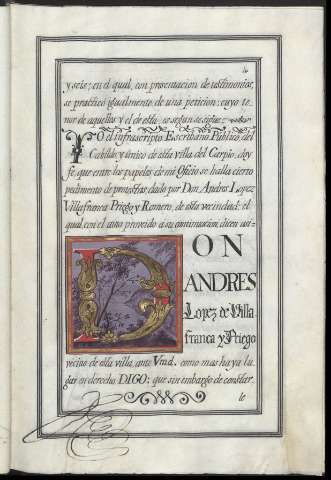 y seis; en el qual, con presentacion de testimonios,
se practicó igualmente de una peticion; cuyo te-
nor de aquellos y el de esta es segun se sigue.
Yo el infrascripto Escribano Público, del
Cabildo y único de esta villa del Carpio, doy
fe, que entre los papeles de mi Oficio se halla cierto
pedimento de protestas dado por Don Andres Lopez
Villafranca Priego y Romero, de esta vecindad; el
qual con el auto proveido a su continuacion, dicen asi=
DON
ANDRES
Lopez de Villa
franca y Priego
vecino de esta villa, ante Vmd. como mas haya lu-
gar en derecho DIGO: que sin embargo de constar-
le